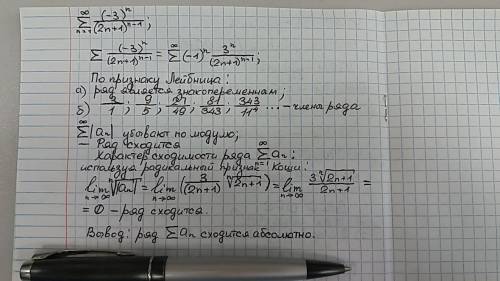 ∑_{n=1}^{∞} (-3)^n / (2n+1)^{n-1} ;
∑ (-3)^n / (2n+1)^{n-1} = ∑^{∞} (-1)^n 3^n / (2n+1)^{n-1} ;
По признаку Лейбница:
а) ряд является знакопеременным;
б) 3/1 ; 9/5 ; 27/49 ; 81/ ; 343/11⁴ ... - члена ряда
∑^{∞} |a_n| убывают по модулю;
— Ряд сходится
Характер сходимости ряда ∑_{n=1}^{∞} a_n :
используя радикальный признак Коши:
lim_{n→∞} ⁿ√|a_n| = lim_{n→∞} (3/(2n+1) ⁿ√(2n+1)) = lim_{n→∞} 3 ⁿ√(2n+1) / (2n+1) =
= 0 - ряд сходится.
Вывод: ряд ∑ a_n сходится абсолютно.